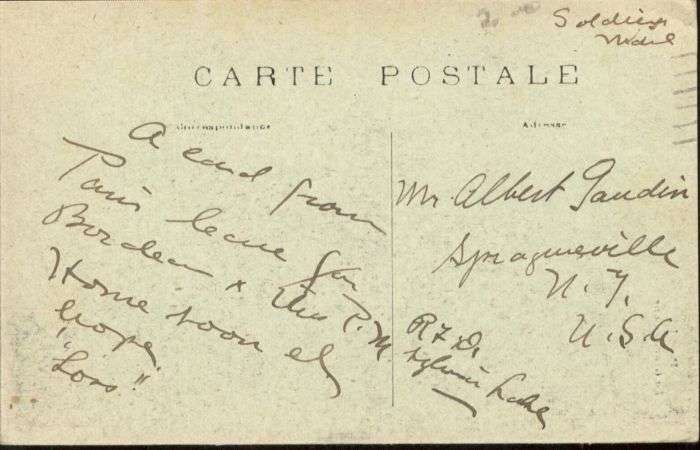 Soldiers
Mail
CARTE POSTALE
Correspondance
Adresse
A card from
Paris leave for
Bordeau x this P.M
Home soon
hope
Mr Albert Gaudin
Spragueville
N.Y.
U.S.A
R F D.
Sylvia Lake